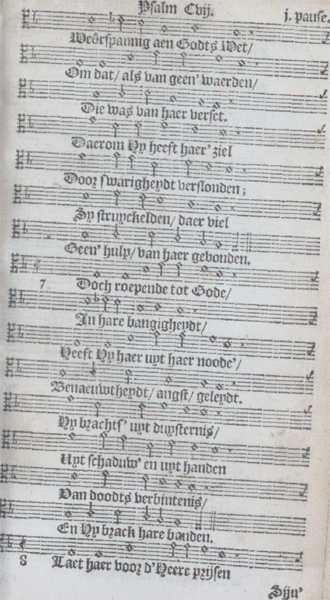 Psalm Cvij. j. pause.
Weêrspannig aen Godts Wet/
Om dat/ als van geen' waerden/
Die was van haer verset.
Daerom Hy heeft haer' ziel
Door swarigheydt verslonden;
Sy struyckelden/ daer viel
Geen' hulp/ van haer gevonden.
7 Doch roepende tot Gode/
In hare bangigheydt/
Heeft Hy haer uyt haer noode'/
Benaeuwtheydt/ angst/ geleydt.
Hy brachts' uyt duysternis/
Uyt schaduw' en uyt handen
Van doodts verbintenis/
En Hy brack hare banden.
8 Laet haer voor d'Heere prijsen
Sijn'